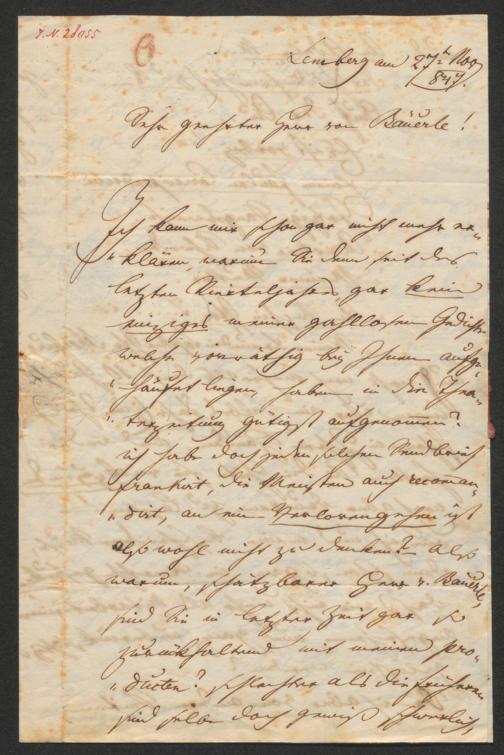 I. N. 28055
Lemberg am 27t Nov
847.
Sehr geehrter Herr von Bäuerle!
Ich kann mir schon gar nicht mehr er-
klären, warum Sie denn seit des
letzten Vierteljahres gar kein
einziges meiner zahllosen Gedichte
welche vorräthig bey Ihnen aufge-
häuft liegen, haben in die Thea-
terzeitung gütigst aufgenommen?
ich habe doch jeden solchen Sendbrief
frankirt, die Meisten auch recoman-
dirt, an ein Verlorengehen ist
also wohl nicht zu denken? also
warum, schätzbarer Herr v. Bäuerle,
sind Sie in letzter Zeit gar so
zurückhaltend mit meinen Pro-
ducten? schlechter als die früheren
sind selbe doch gewiß schwerlich,